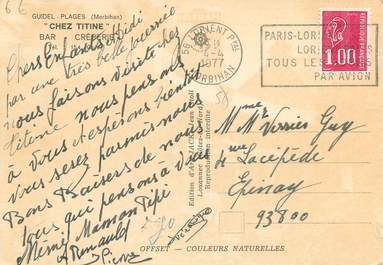 6 E
GUIDEL - PLAGES (Morbihan)
"CHEZ TITINE"
BAR CRÊPERIE
Chers Enfants
par une très belle journée
nous faisons visite chez
Titine nous pensons
à vous et espérons bientôt
vous serez parmis nous
Bons Baisers de nous
tous qui pensons à vous
Mémé Maman Pépé
A Renault
Pierre
56 LORIENT Pal
4-4
1977
MORBIHAN
PARIS-LORIENT
TOUS LES
PAR AVION
1,00
58
Mme Mr Verrier Guy
4 rue Lacépède
Epinay
93800
Reproduction interdite
OFFSET - COULEURS NATURELLES